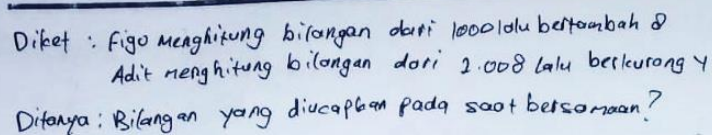 Diket : Figo Menghitung bilangan dari 1000 lalu bertambah 8
Adit menghitung bilangan dari 2.008 lalu berkurang 4
Ditanya : Bilangan yang diucapkan pada saat bersamaan?